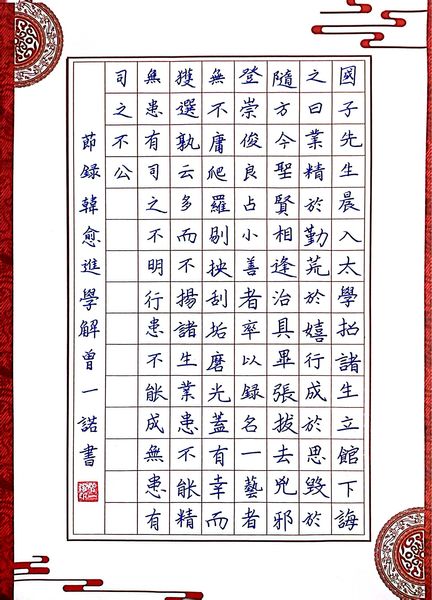 國子先生晨入太學招諸生立館下誨
之曰業精於勤荒於嬉行成於思毀於
隨方今聖賢相逢治具畢張拔去兇邪
登崇俊良占小善者率以録名一藝者
無不庸爬羅剔抉刮垢磨光蓋有幸而
獲選孰云多而不揚諸生業患不能精
無患有司之不明行患不能成無患有
司之不公
節録韓愈進學解曾一諾書